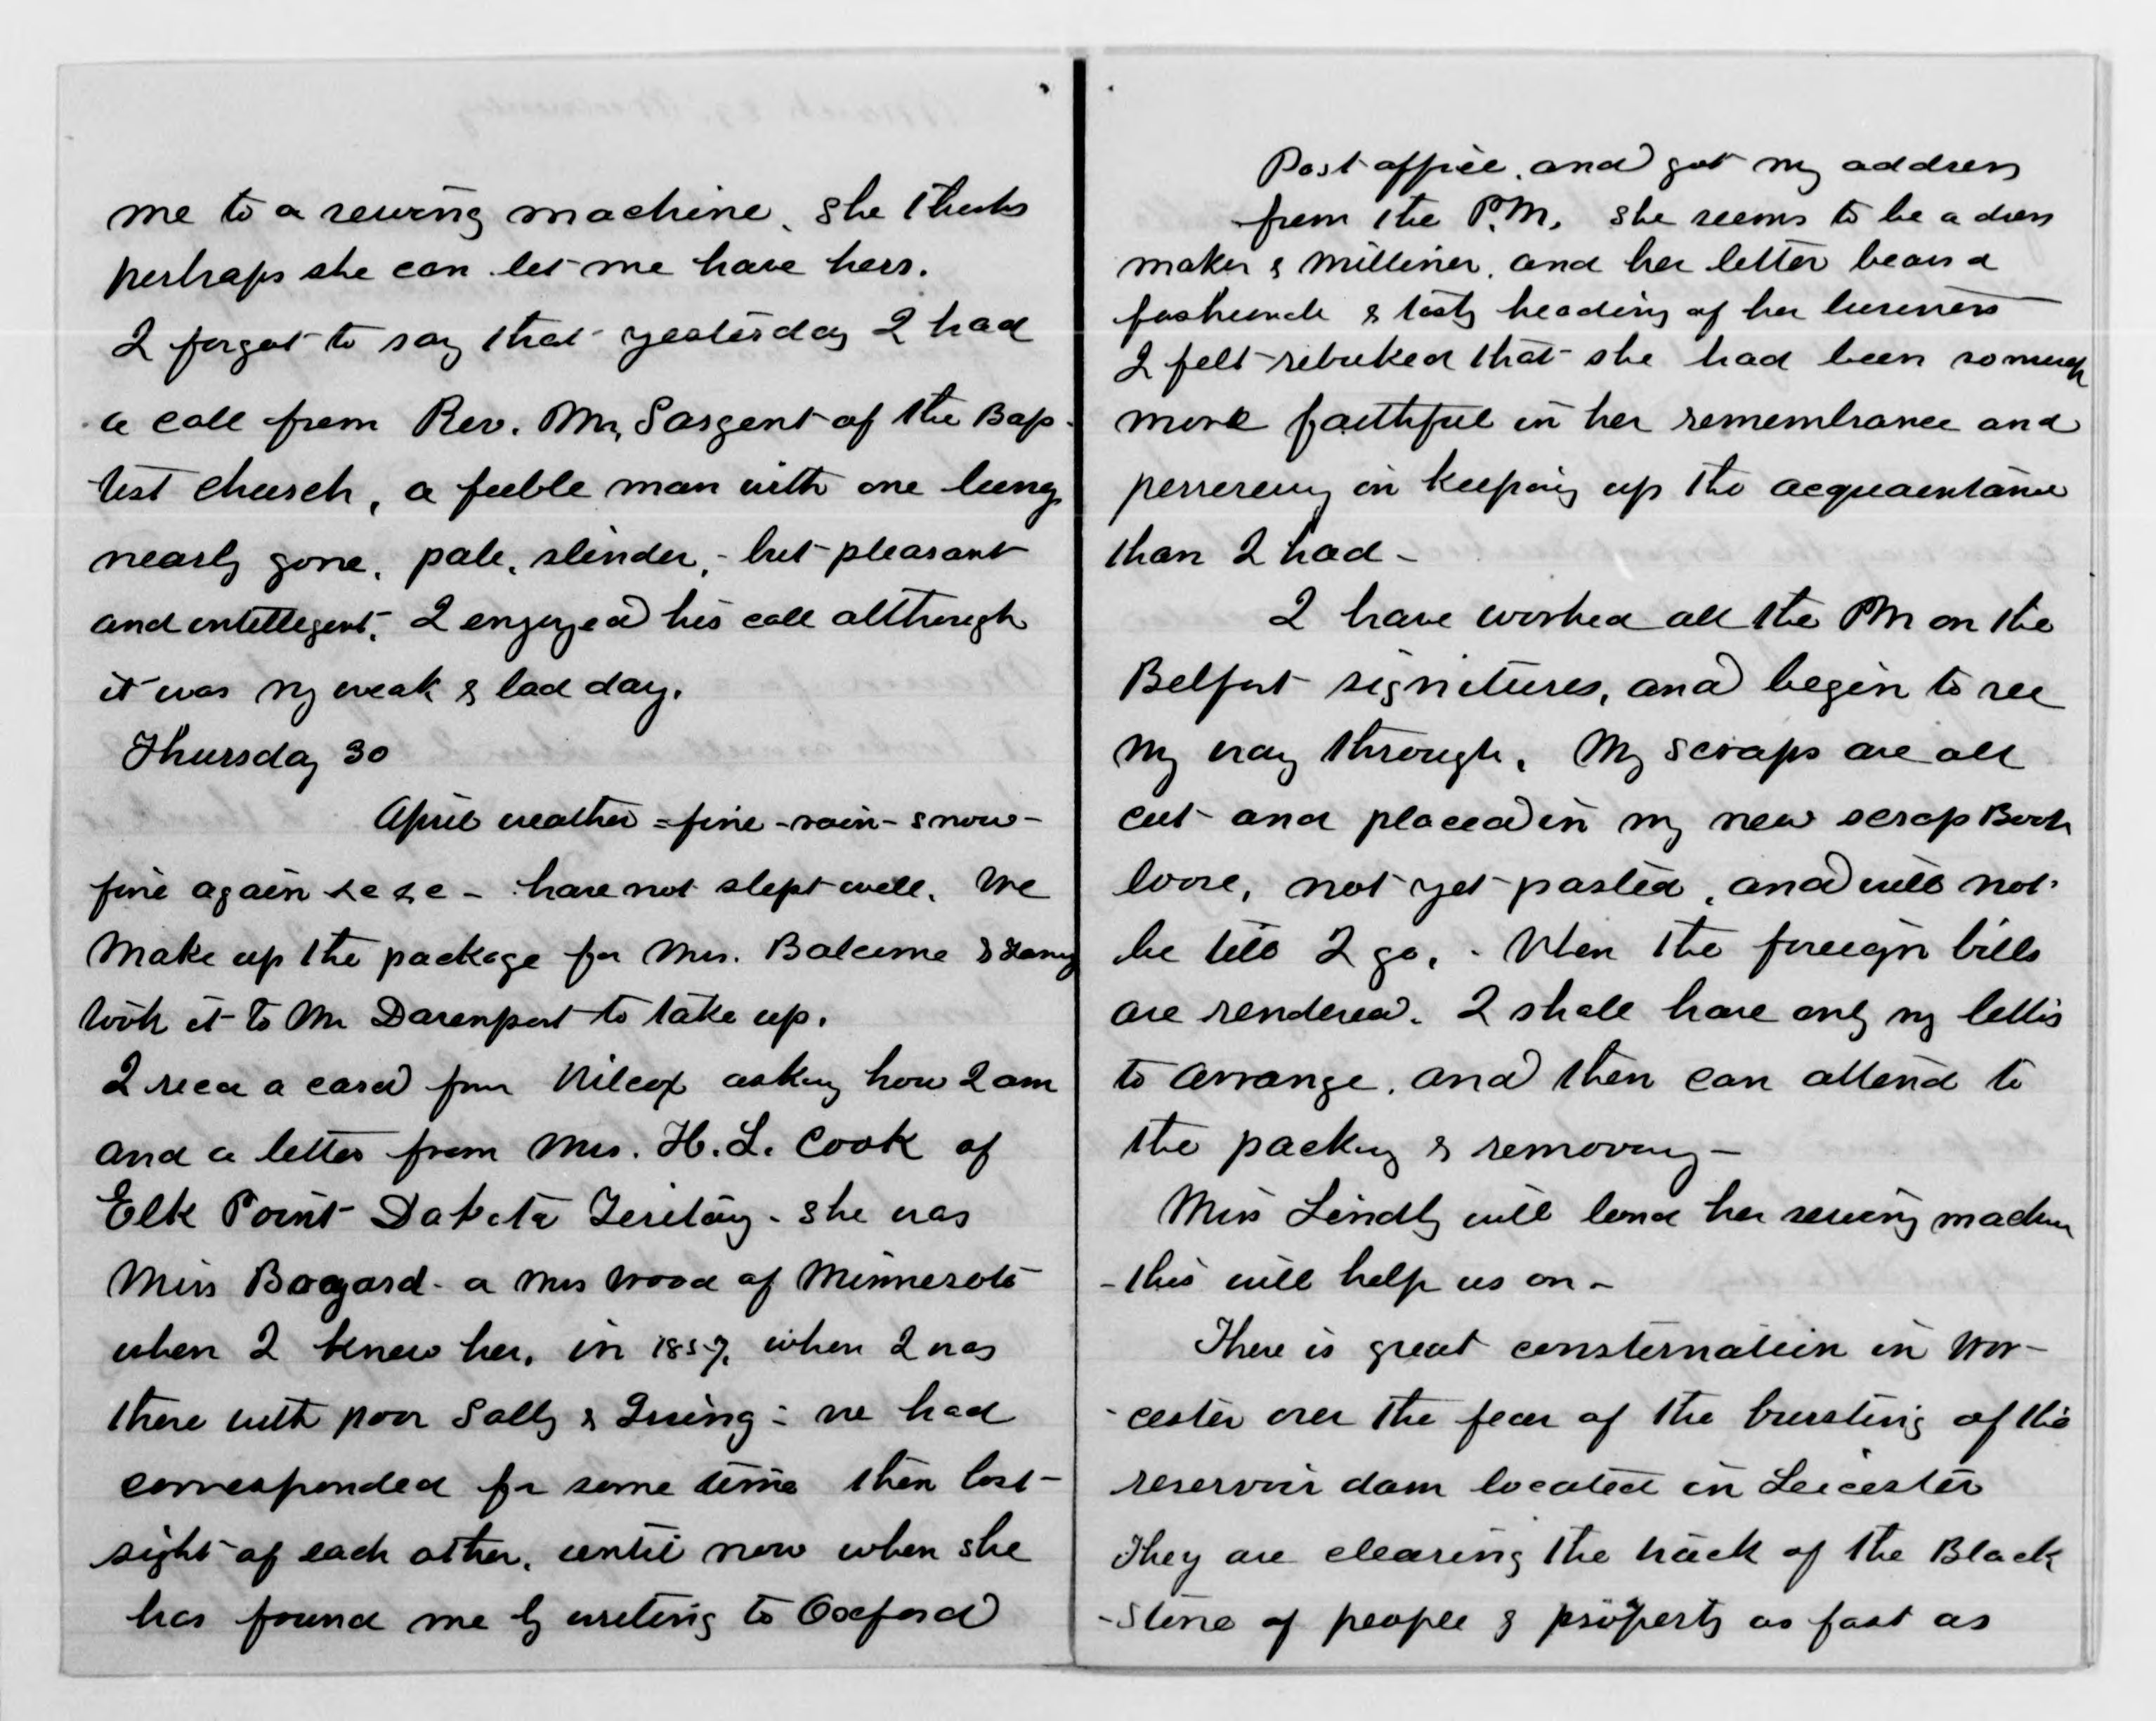 me to a sewing machine, she thinks
perhaps she can let me have hers.
I forgot to say that yesterday I had
a call from Rev. Mr, Sargent of the Bap-
tist church, a feeble man with one lung
nearly gone, pale, slender, - but pleasant
and intellegent, I enjoyed his call although
it was my weak & bad day.
Thursday 30
April weather - fine - rain - snow -
fine again &c &c - have not slept well. We
make up the package for Mrs. Balcome &
took it to Mr Davenport to take up.
I recd a card from Wilcox asking how I am
and a letter from Mrs. H. L. Cook of
Elk Point Dakota Teritory - she was
Miss Bogard - a Mrs Wood of Minnesota
when I knew her, in 1857, when I was
there with poor Sally & Irving - we had
corresponded for some time then lost
sight of each other, until now when she
has found me by writing to Oxford
Post office, and got my address
from the P.M. she seems to be a dress
maker & milliner, and her letter bears a
fashionable & tasty heading of her business -
I felt rebuked that she had been so much
more faithful in her remembrance and
persevering in keeping up the acquaintance
than I had -
I have worked all the PM on the
Belfort signitures, and begin to see
my way through. My scraps are all
cut and placed in my new scrap Book
loose, not yet pasted, and will not
be till I go. - When the foreign bills
are rendered. I shall have only my letters
to arrange, and then can attend to
the packing & removing -
Miss Lindly will lend her sewing machine
- this will help us on -
There is great consternation in Wor-
-cester over the fear of the bursting of the
reservoir dam located in Leicester
They are clearing the track of the Black
-stone of people & property as fast as